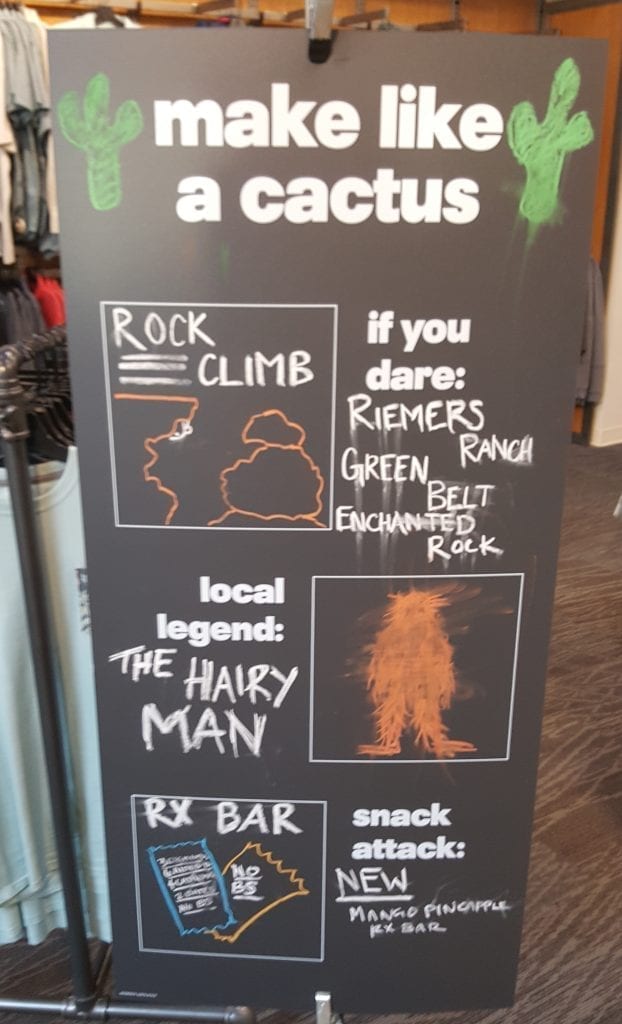 make like
a cactus
ROCK
CLIMB
if you
dare:
RIEMERS
RANCH
GREEN
BELT
ENCHANTED
ROCK
local
legend:
THE HAIRY
MAN
RX BAR
NO
BS
NO BS
snack
attack:
NEW
MANGO PINEAPPLE
RX BAR